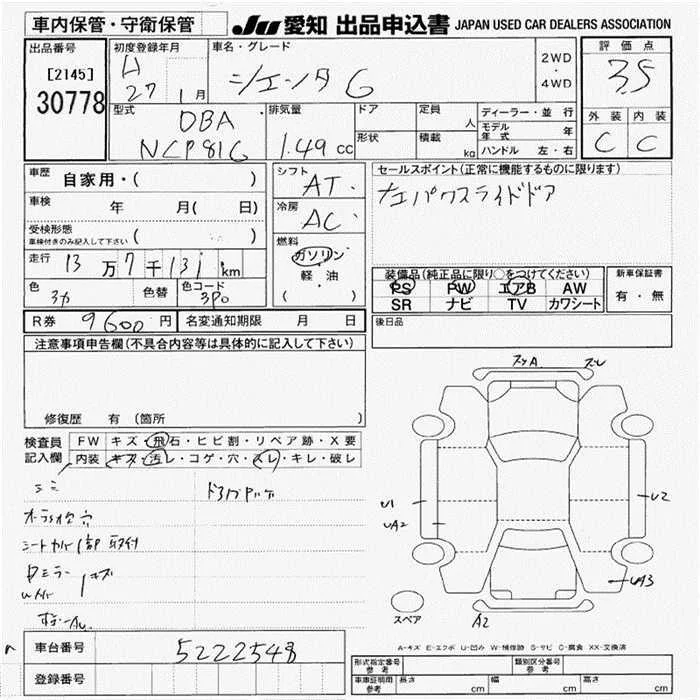 車内保管・守衛保管
JU 愛知 出品申込書 JAPAN USED CAR DEALERS ASSOCIATION
出品番号 初度登録年月 車名・グレード 2WD・4WD 評価点
[2145] H 27 1月 シエンタ G 3.5
30778
型式 排気量 ドア 定員 人 ディーラー・並行
DBA 外装 内装
NCP81G 1.49 CC 形状 積載 kg モデル年式 年
C C
ハンドル 左・右
車歴 自家用・( )
シフト AT
セールスポイント(正常に機能するものに限ります)
車検 年 月( 日)
冷房 AC
左パワースライドドア
受検形態
車検付きのみ記入して下さい ( )
燃料 ガソリン
軽・油
( )
走行 13万7千131km
装備品(純正品に限り○をつけてください) 新車保証書
色 色替 色コード 3P0
PS PW エアB AW 有・無
SR ナビ TV カワシート
R券 9600円 名変通知期限 月 日
後日品
注意事項申告欄(不具合内容等は具体的に記入して下さい)
修復歴 有 (箇所 )
検査員 FW キズ・飛石・ヒビ割・リペア跡・X要
記入欄 内装 キズ・汚レ・コゲ・穴・スレ・キレ・破レ
シートカバー1部取付
U1
UA2
U2
UA3
A2
スペア
A-キズ E-エクボ U-凹み W-補修跡 S-サビ C-腐食 XX-交換済
車台番号 5222548
登録番号
形式指定番号 参考 類別区分番号 参考
車庫証明用 参考 長さ cm 幅 cm 高さ cm